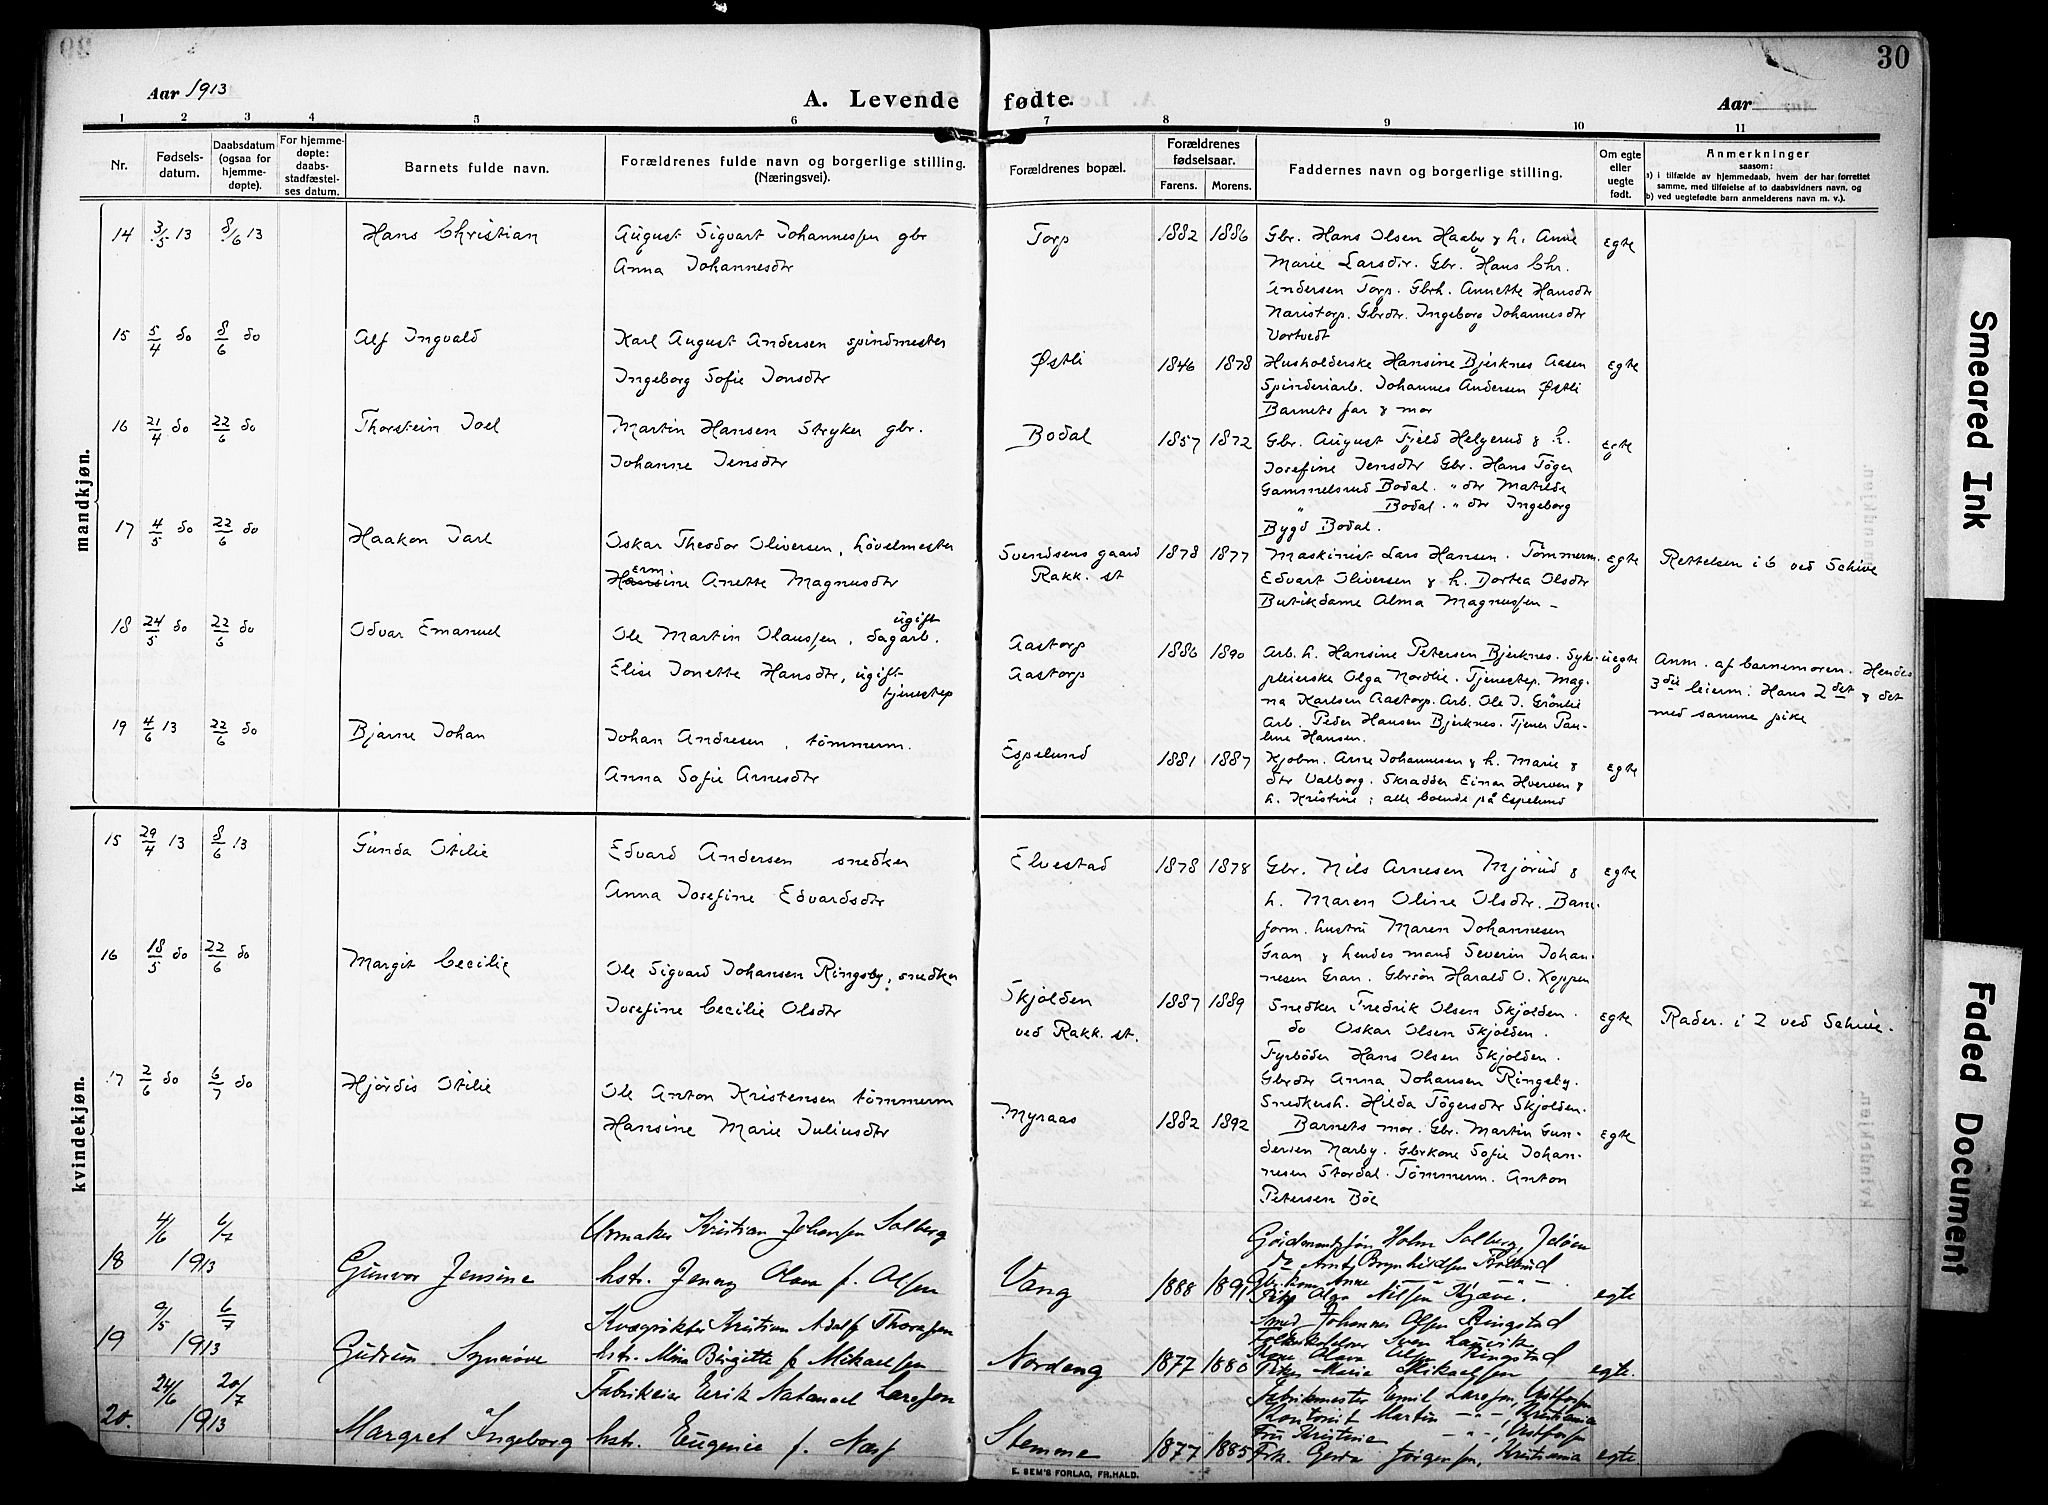 30
Aar 1913
A. Levende fødte.
Aar
1 2 3 4 5 6 7 8 9 10 11
Nr.
Fødsels-
datum.
Daabsdatum
(ogsaa for
hjemme-
døpte).
For hjemme-
døpte:
daabs
stadfæstel-
ses datum.
Barnets fulde navn.
Forældrenes fulde navn og borgerlige stilling.
(Næringsvei).
Forældrenes bopæl.
Forældrenes
fødselsaar.
Farens. Morens.
Faddernes navn og borgerlige stilling.
Om egte
eller
uegte
født.
Anmerkninger
saasom:
a) i tilfælde av hjemmedaab, hvem der har forrettet
samme, med tilføielse af to daabsvidners navn, og
b) ved uegtefødte barn anmelderens navn m. v.).
mandkjøn.
14 3/5 13 8/6 13 Hans Christian
August Sigvart Johannessen gbr
Anna Johannesdtr
Torp 1882 1886
Gbr. Hans Olsen Haaby & h. Anne
Marie Larsdtr. Gbr. Hans Chr.
Andersen Torp. Gbrh. Annette Hansdtr
Naristorp. Gbrdtr. Ingeborg Johannesdtr
Vortvedt
egte
15 5/4 do 8/6 do Alf Ingvald
Karl August Andersen spindmester
Ingeborg Sofie Jonsdtr
Østli 1846 1878
Husholderske Hansine Bjerknes Aasen
Spinderiarb. Johannes Andersen Østli
Barnets far & mor
egte
16 21/4 do 22/6 do Thorstein Joel
Martin Hansen Stryker gbr.
Johanne Jensdtr
Bodal 1857 1872
Gbr. August Fjeld Helgerud & h.
Josefine Jensdtr Gbr. Hans Töger
Gammelsrud Bodal. " dtr Matilde
" Bodal. " dtr Ingeborg
Bygd Bodal.
egte
17 4/5 do 22/6 do Haakon Jarl
Oskar Theodor Oliversen, hövelmester
Erm
Hansine Anette Magnusdtr
Svendsens gaard
Rakk. st
1878 1877
Maskinist Lars Hansen. Tömmerm.
Edvart Oliversen & h. Dortea Olsdtr
Butikdame Alma Magnussen –
egte
Rettelsen i 6 ved Schive
18 24/5 do 22/6 do Odvar Emanuel
ugift
Ole Martin Olaussen, sagarb.
Elise Jonette Hansdtr, ugift
tjenestep
Aastorp
Aastorp
1886 1890
Arb. h. Hansine Petersen Bjerknes. Syke
pleierske Olga Nordlie. Tjenestep. Mag-
na Karlsen Aastorp. Arb. Ole J. Grönlie
Arb. Peder Hansen Bjerknes. Tjener Pau-
line Hansen.
uegte
Anm. af barnemoren. Hendes
3die leierm: Hans 2det & det
med samme pike
19 4/6 13 22/6 do Bjarne Johan
Johan Andresen, tömmerm.
Anna Sofie Arnesdtr
Espelund 1881 1887
Kjøbm. Arne Johannesen & h. Marie &
dtr Valborg. Skrædder Einar Hverven &
h. Kristine; alle boende på Espelund
egte
kvindekjøn.
15 29/4 13 8/6 13 Gunda Otilie
Edvard Andersen snedker
Anna Josefine Edvardsdtr
Elvestad 1878 1878
Gbr. Nils Arnesen Mjørud &
h. Maren Oline Olsdtr. Bane-
form. hustru Maren Johannesen
Gran & hendes mand Severin Johan-
nesen Gran. Gbrsön Harald O. Koppen
egte
16 18/5 do 22/6 do Margit Cecilie
Ole Sigvard Johansen Ringsby, snedker
Josefine Cecilie Olsdtr
Skjolden
ved Rakk. st.
1887 1889
Snedker Fredrik Olsen Skjolden.
do Oskar Olsen Skjolden.
Fyrböder Hans Olsen Skjolden.
Gbrdtr Anna Johansen Ringsby.
Snedkersh. Hilda Tögersdtr Skjolden.
egte
Rader. i 2 ved Schive.
17 2/6 do 6/7 do Hjördis Otilie
Ole Anton Kristensen tömmerm
Hansine Marie Juliusdtr
Myraas 1882 1892
Barnets mor. Gbr. Martin Gun-
dersen Narby. Gbrkone Sofie Johan-
nesen Stordal. Tömmerm. Anton
Petersen Böe
egte
18 4/6 6/7 1913 Gunvor Jensine
Urmaker Kristian Johansen Solberg
hstr. Jenny Olava f. Olsen
Vang 1888 1891
Holm Solberg, Jeløen
Gbr. kone Anne
Pike Olga Nilsen Kjære.
egte
19 9/5 6/7 1913 Gudrun Synnöve
Kvægrökter Kristian Adolf Thoresen
hstr. Mina Birgitte f Mikaelsen
Nordeng 1877 1880
Smed Johannes Olsen Ringstad
Sven Laurvik
Kone Olava Ringstad
Pike Marie Mikaelsen
egte.
20. 24/6 20/7 1913 Margret Ingeborg
Fabrikeier Eerik Natanael Larsson
hstr. Eugenie f. Næss
Stemme 1877 1885
Fabrikmester Emil Larsson, Vestfossen
Kontorist Martin –"–, Kristiania
Fru Kristine –"–, Vestfossen
Frk. Gerda Jörgensen, Kristiania
egte.
E. SEM'S FORLAG, FR.HALD.
Smeared Ink
Faded Document